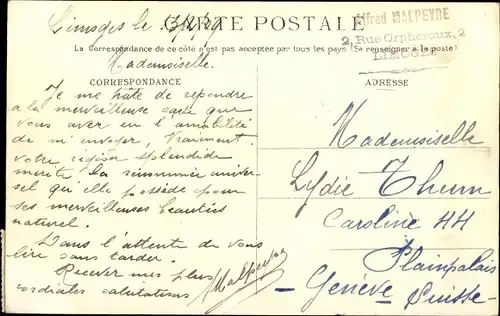 Limoges le
CARTE POSTALE
Alfred MALPEYRE
2, Rue Orpheroux, 2
LIMOGES
La Correspondance de ce côté n'est pas acceptée par tous les pays (Se renseigner à la poste)
Mademoiselle.
CORRESPONDANCE
Je me hâte de répondre
a la merveilleuse carte que
vous avez eu l'amabilité
de m'envoyer, Vraiment.
votre région splendide
mérite la renommée univer-
sel qu'elle possède pour
ses merveilleuses beautées
naturel.
Dans l'attente de vous
lire sans tarder.
Recever mes plus
cordiales salutations
AMalpeyre
ADRESSE
Mademoiselle
Lydie Thum
Caroline 44
Plainpalais
- Genève Suisse -